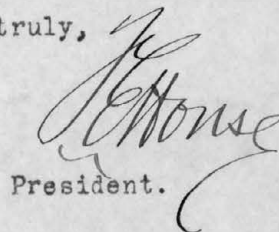 truly,
J E House
President.